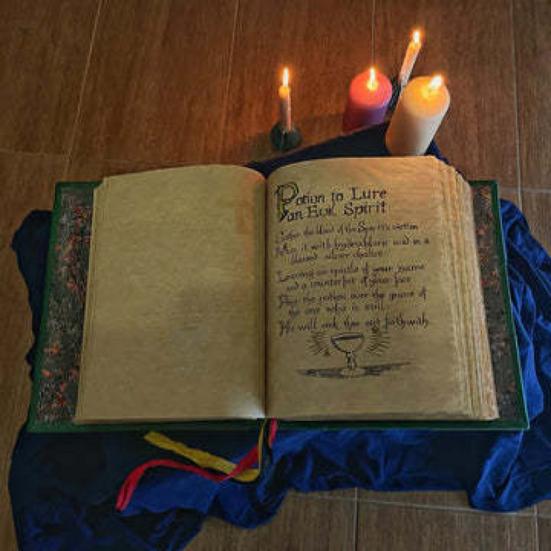 Potion to Lure
an Evil Spirit
Gather the blood of the Spirit's victim
Mix it with hydrochloric acid in a
blessed silver chalice
Leaving an epistle of your name
and a counterfeit of your face
the potion over the grave of
the one who is still.
He will seek thee out forthwith.